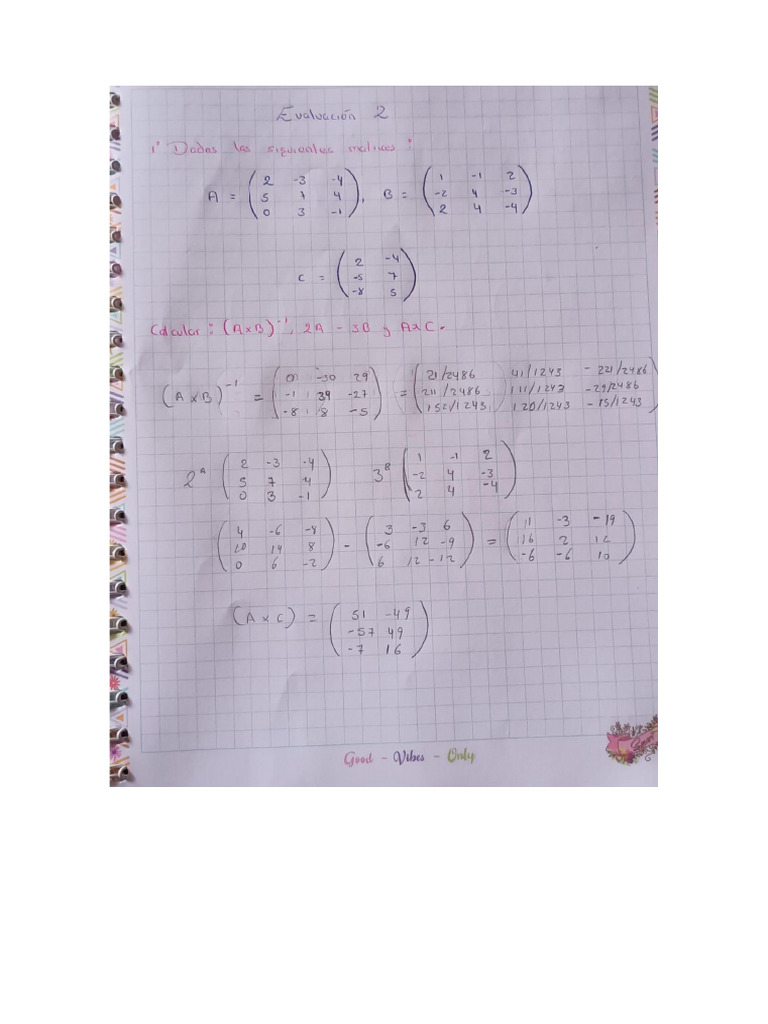 Evaluación 2
1° Dadas las siguientes matrices:
A = ( 2 -3 -4
5 7 4
0 3 -1 ), B = ( 1 -1 2
-2 4 -3
2 4 -4 )
C = ( 2 -4
-5 7
-8 5 )
Calcular: (AxB)⁻¹, 2A - 3B y AxC.
(A x B)⁻¹ = ( 01 -30 29
-1 39 -27
-8 8 -5 ) = ( 21/2486 41/1243 -221/2486
211/2486 111/1243 -29/2486
152/1243 120/1243 -15/1243 )
2ᴬ ( 2 -3 -4
5 7 4
0 3 -1 ) 3ᴮ ( 1 -1 2
-2 4 -3
2 4 -4 )
( 4 -6 -8
20 14 8
0 6 -2 ) - ( 3 -3 6
-6 12 -9
6 12 -12 ) = ( 11 -3 -19
16 2 12
-6 -6 10 )
(A x C) = ( 51 -49
-57 49
-7 16 )
Good - Vibes - Only